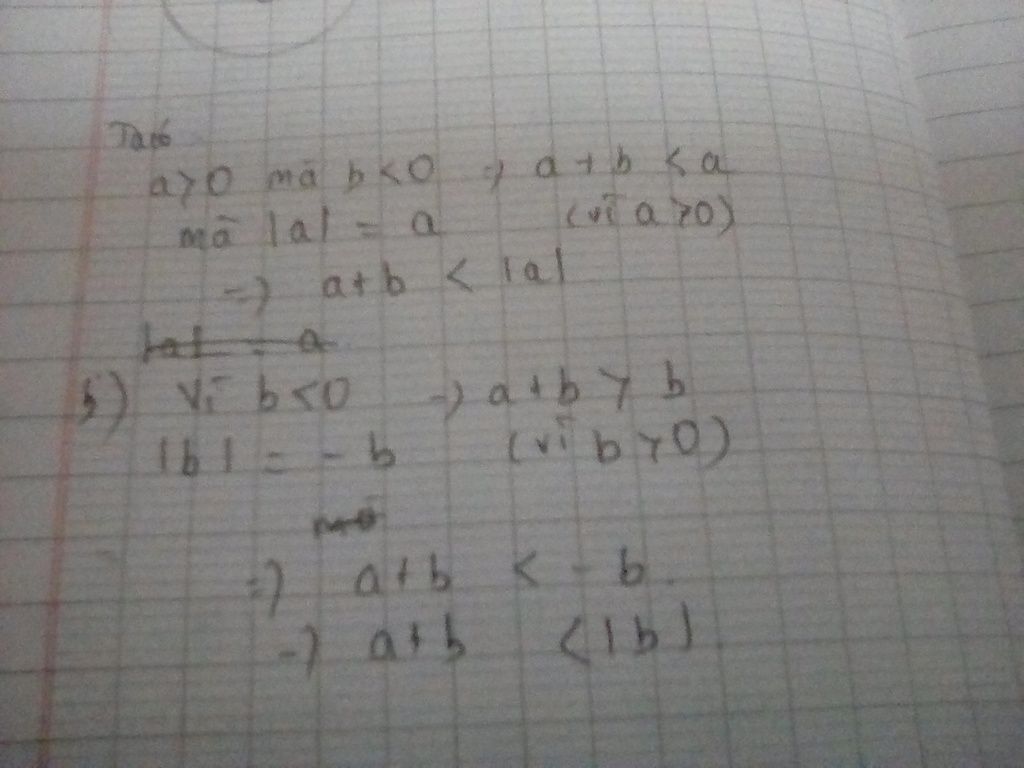 Ta có
a>0 mà b<0 => a + b < a
mà |a| = a (vì a>0)
=> a+b < |a|
|a| = a
b) Vì b<0 => a+b > b
|b| = - b (vì b>0)
mà
=> a+b < - b.
=> a+b <|b|